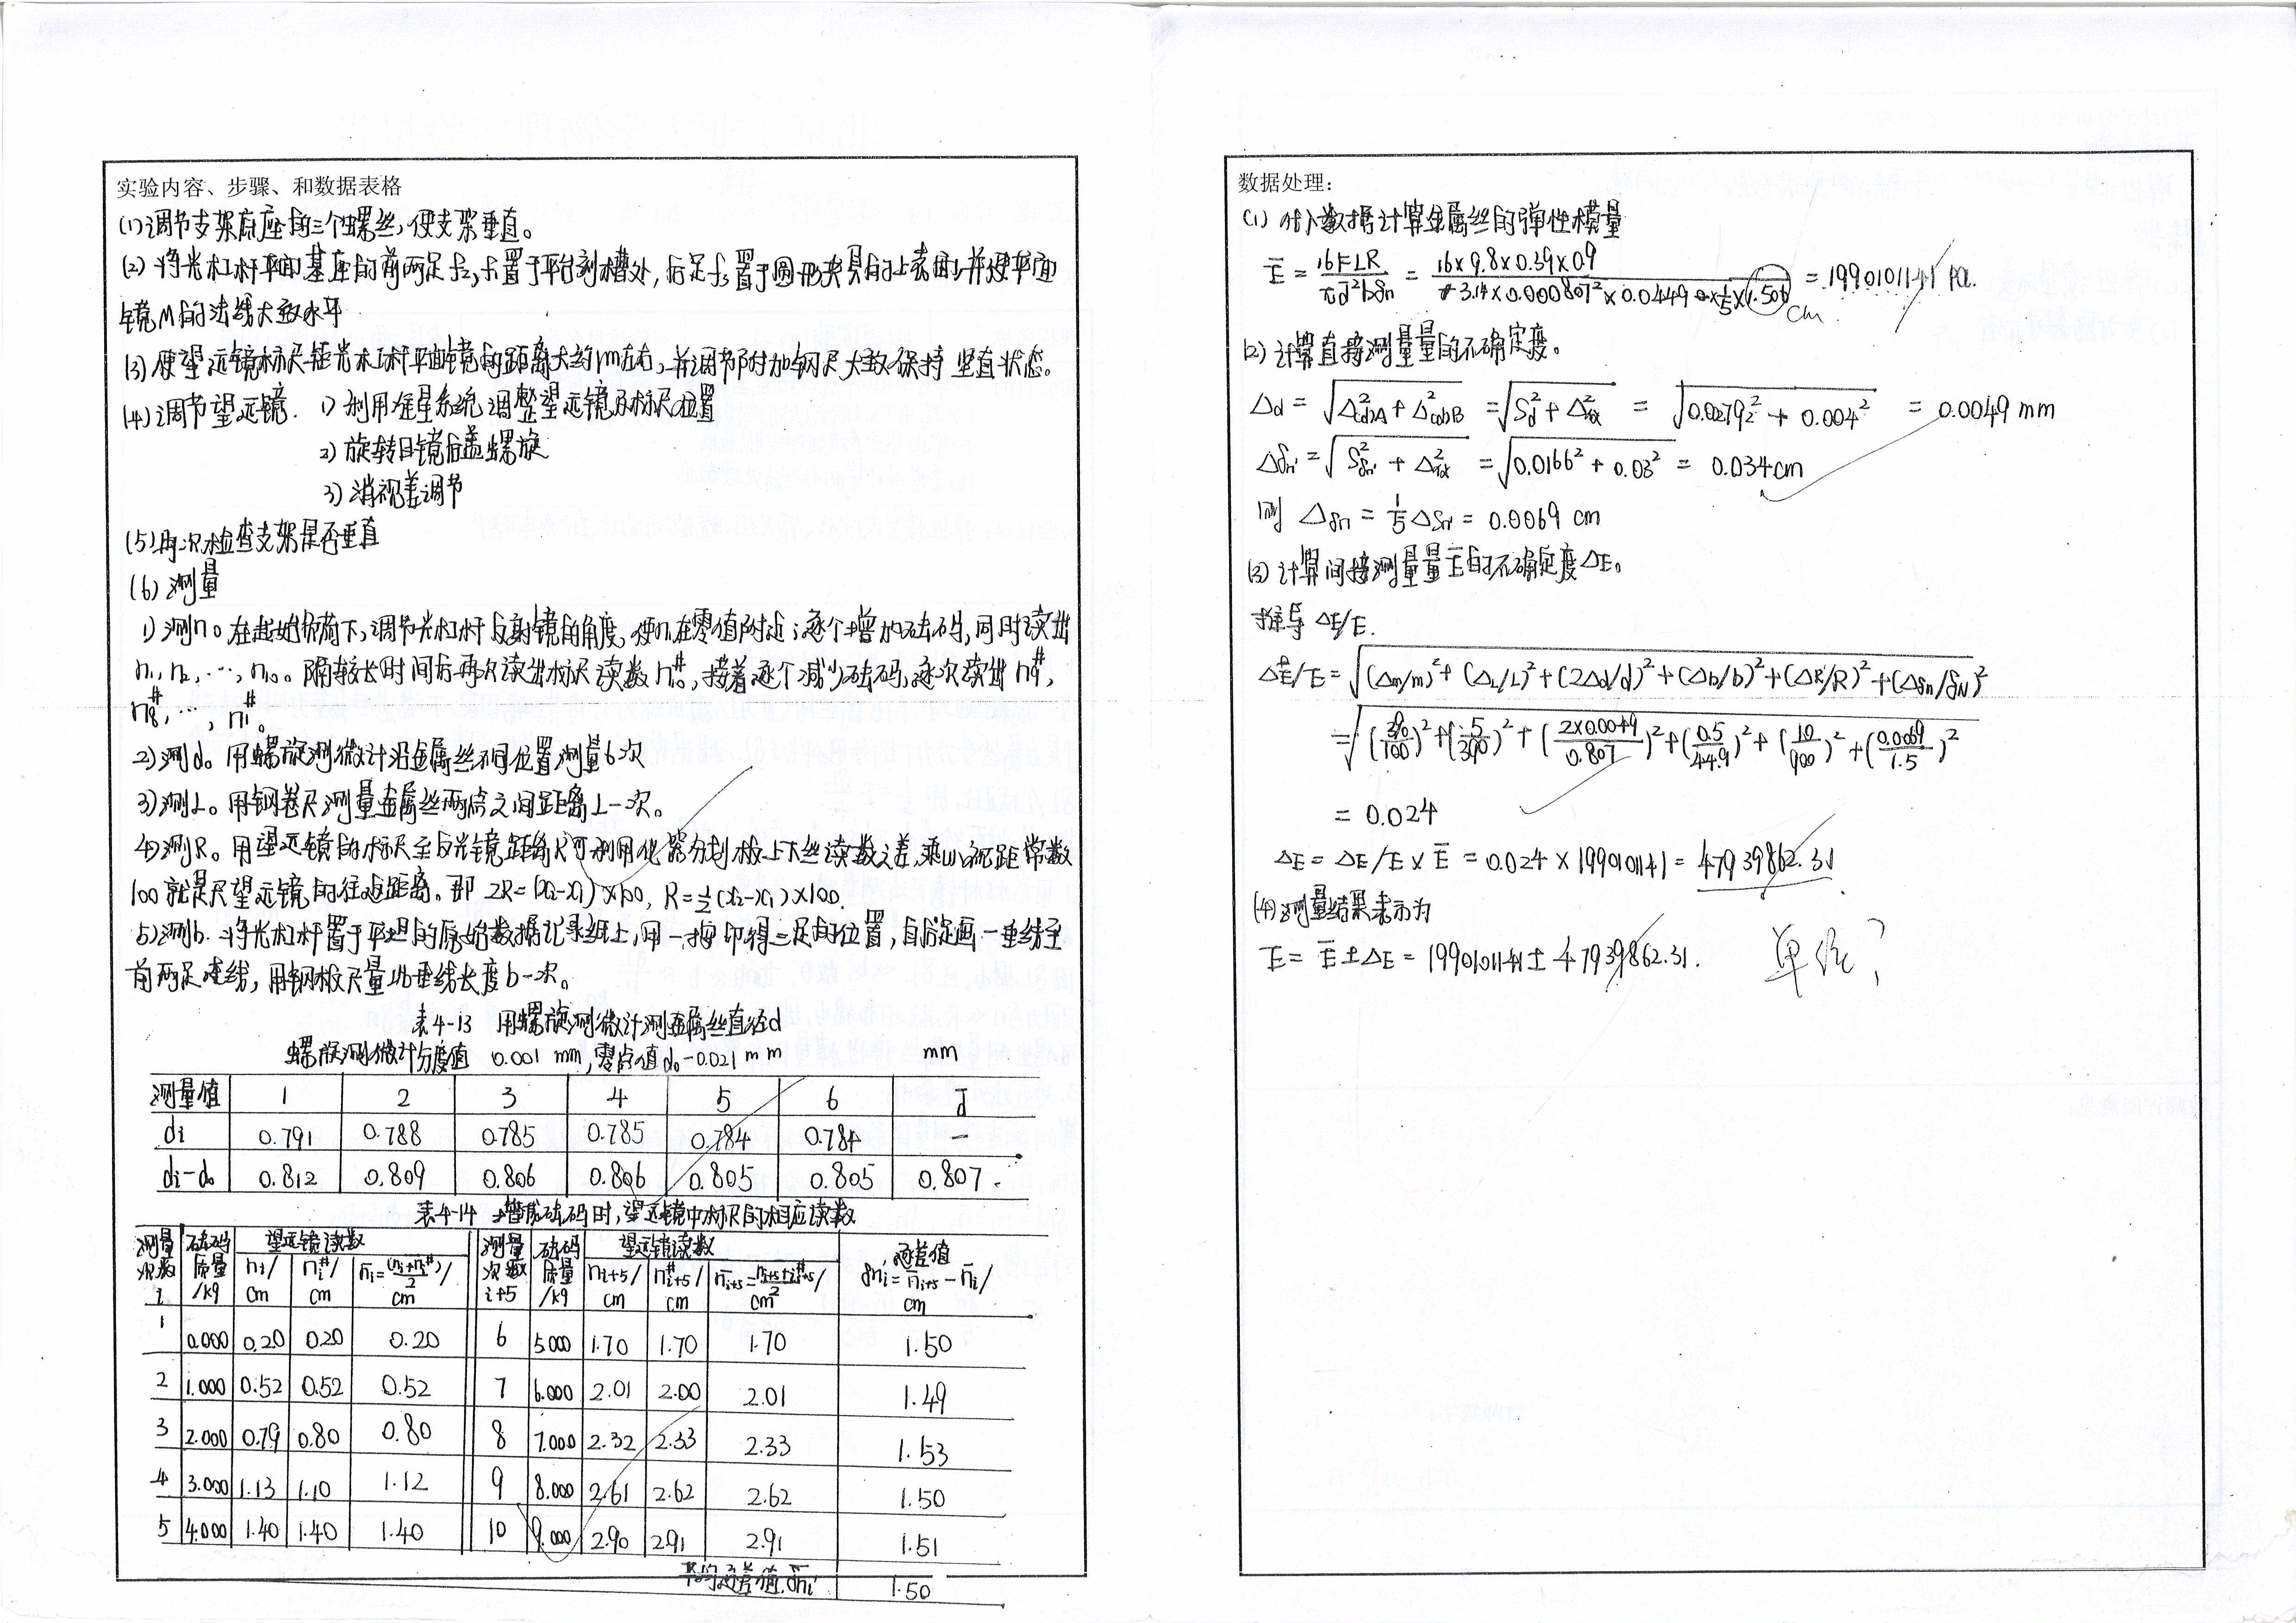 实验内容、步骤、和数据表格
(1)调节支架底座的三个螺丝,使支架垂直。
(2)将光杠杆平面基座的前两足f₂,f₃置于平台刻槽处,后足f₁置于圆形夹具的上表面,并使平面
镜M的法线大致水平
(3)使望远镜标尺距光杠杆平面镜的距离大约1m左右,并调节附加钢尺大致保持竖直状态。
(4)调节望远镜. 1)利用准星系统调整望远镜及标尺位置
2)旋转目镜后盖螺旋
3)消视差调节
(5)再次检查支架是否垂直
(6)测量
1)测n。在起始负荷下,调节光杠杆反射镜的角度,使n₁在零值附近;逐个增加砝码,同时读出
n₁,n₂,…,n₁₀。隔较长时间后再次读出标尺读数n₁₀^#,接着逐个减少砝码,逐次读出n₉^#,
n₈^#,…,n₁^#。
2)测d。用螺旋测微计沿金属丝不同位置测量6次
3)测L。用钢卷尺测量金属丝两点之间距离L一次。
4)测R。用望远镜的标尺至反光镜距离R可利用仪器分划板上下丝读数之差,乘以视距常数
100就是尺望远镜的往返距离。即 2R=(x₂-x₁)×100, R=½(x₂-x₁)×100.
5)测b.将光杠杆置于平坦的原始数据记录纸上,用一按印得三足的位置,自后足画一垂线至
前两足连线,用钢板尺量出垂线长度b一次。
表4-13 用螺旋测微计测金属丝直径d
螺旋测微计分度值 0.001 mm,零点值d₀-0.021mm mm
测量值 1 2 3 4 5 6 d̄
di 0.791 0.788 0.785 0.785 0.784 0.784 —
di-d₀ 0.812 0.809 0.806 0.806 0.805 0.805 0.807
表4-14 增减砝码时,望远镜中标尺的相应读数
测量次数 i 砝码质量/kg 望远镜读数 nᵢ/cm nᵢ^#/cm n̄ᵢ=(nᵢ+nᵢ^#)/2 /cm 测量次数 i+5 砝码质量/kg 望远镜读数 nᵢ₊₅/cm n^#ᵢ₊₅/cm n̄ᵢ₊₅=(nᵢ₊₅+n^#ᵢ₊₅)/2 /cm 逐差值 δnᵢ'=n̄ᵢ₊₅-n̄ᵢ/cm
1 0.000 0.20 0.20 0.20 6 5.000 1.70 1.70 1.70 1.50
2 1.000 0.52 0.52 0.52 7 6.000 2.01 2.00 2.01 1.49
3 2.000 0.79 0.80 0.80 8 7.000 2.32 2.33 2.33 1.53
4 3.000 1.13 1.10 1.12 9 8.000 2.61 2.62 2.62 1.50
5 4.000 1.40 1.40 1.40 10 9.000 2.90 2.91 2.91 1.51
平均逐差值 δ̄nᵢ' 1.50
数据处理:
(1) 代入数据计算金属丝的弹性模量
Ē = 16FLR/(πd̄²bδn) = 16×9.8×0.39×0.9/(3.14×0.000807²×0.0449×1/5×1.506) = 1990101141 Pa.
cm
(2)计算直接测量量的不确定度。
Δd = √(Δ²cdnA + Δ²cdnB) = √(S²d + Δ²仪) = √(0.02792² + 0.004²) = 0.0049 mm
Δδn' = √(S²δn' + Δ²仪) = √(0.0166² + 0.03²) = 0.034cm
则 Δδn = 1/5 Δδn' = 0.0069 cm
(3)计算间接测量量E的不确定度ΔE。
推导 ΔE/E.
ΔE/E = √((Δm/m)²+(ΔL/L)²+(2Δd/d)²+(Δb/b)²+(ΔR/R)²+(Δδn/δN)²
= √((/100)²+(5/390)²+(2×0.0049/0.807)²+(0.5/44.9)²+(10/900)²+(0.0069/1.5)²
= 0.024
ΔE = ΔE/E × Ē = 0.024 × 1990101141 = 47939862.31
(4)测量结果表示为
E = Ē±ΔE = 1990101141± 47939862.31.
单位?